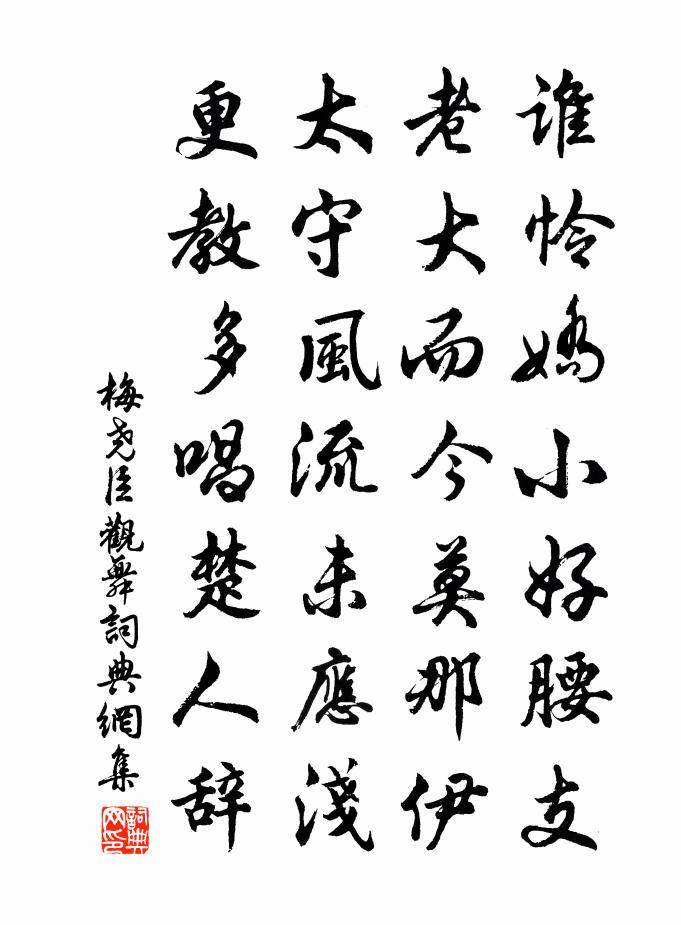 谁怜嬌小好腰支
老大而今莫那伊
太守風流未應淺
更教多唱楚人辞
梅尧臣觀舞詞典網集
詞典网印